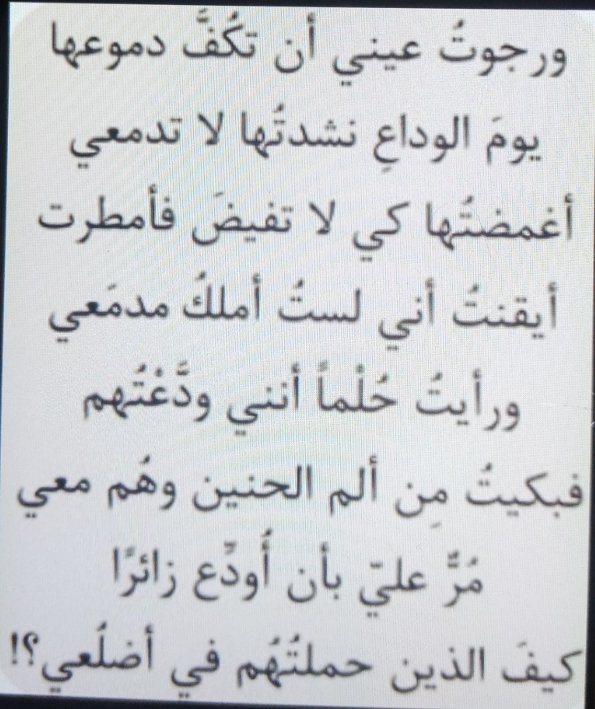 ورجوتُ عيني أن تكُفَّ دموعها
يومَ الوداعِ نشدتُها لا تدمعي
أغمضتُها كي لا تفيضَ فأمطرت
أيقنتُ أني لستُ أملكُ مدمَعي
ورأيتُ حُلْماً أنني ودَّعْتُهم
فبكيتُ مِن ألم الحنين وهُم معي
مُرٌّ عليّ بأن أُودِّع زائرًا
كيفَ الذين حملتُهُم في أضلُعي؟!